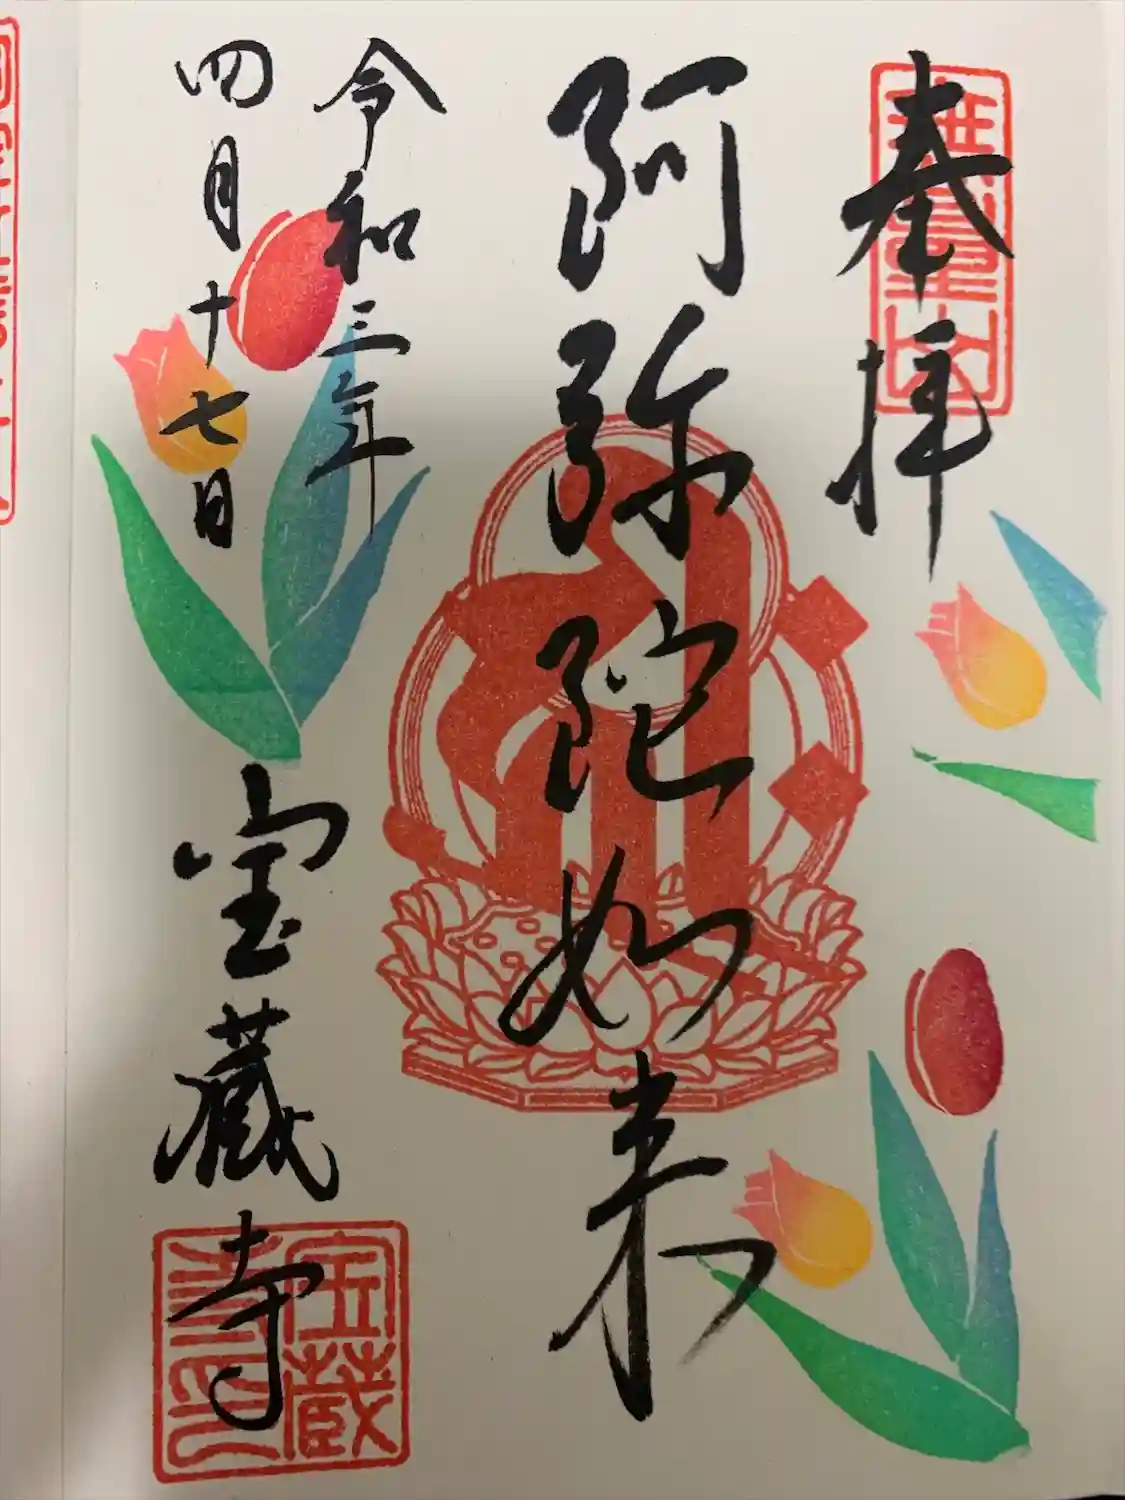 奉拝
阿弥陀如来
令和三年
四月十七日
宝蔵寺
宝蔵
寺印